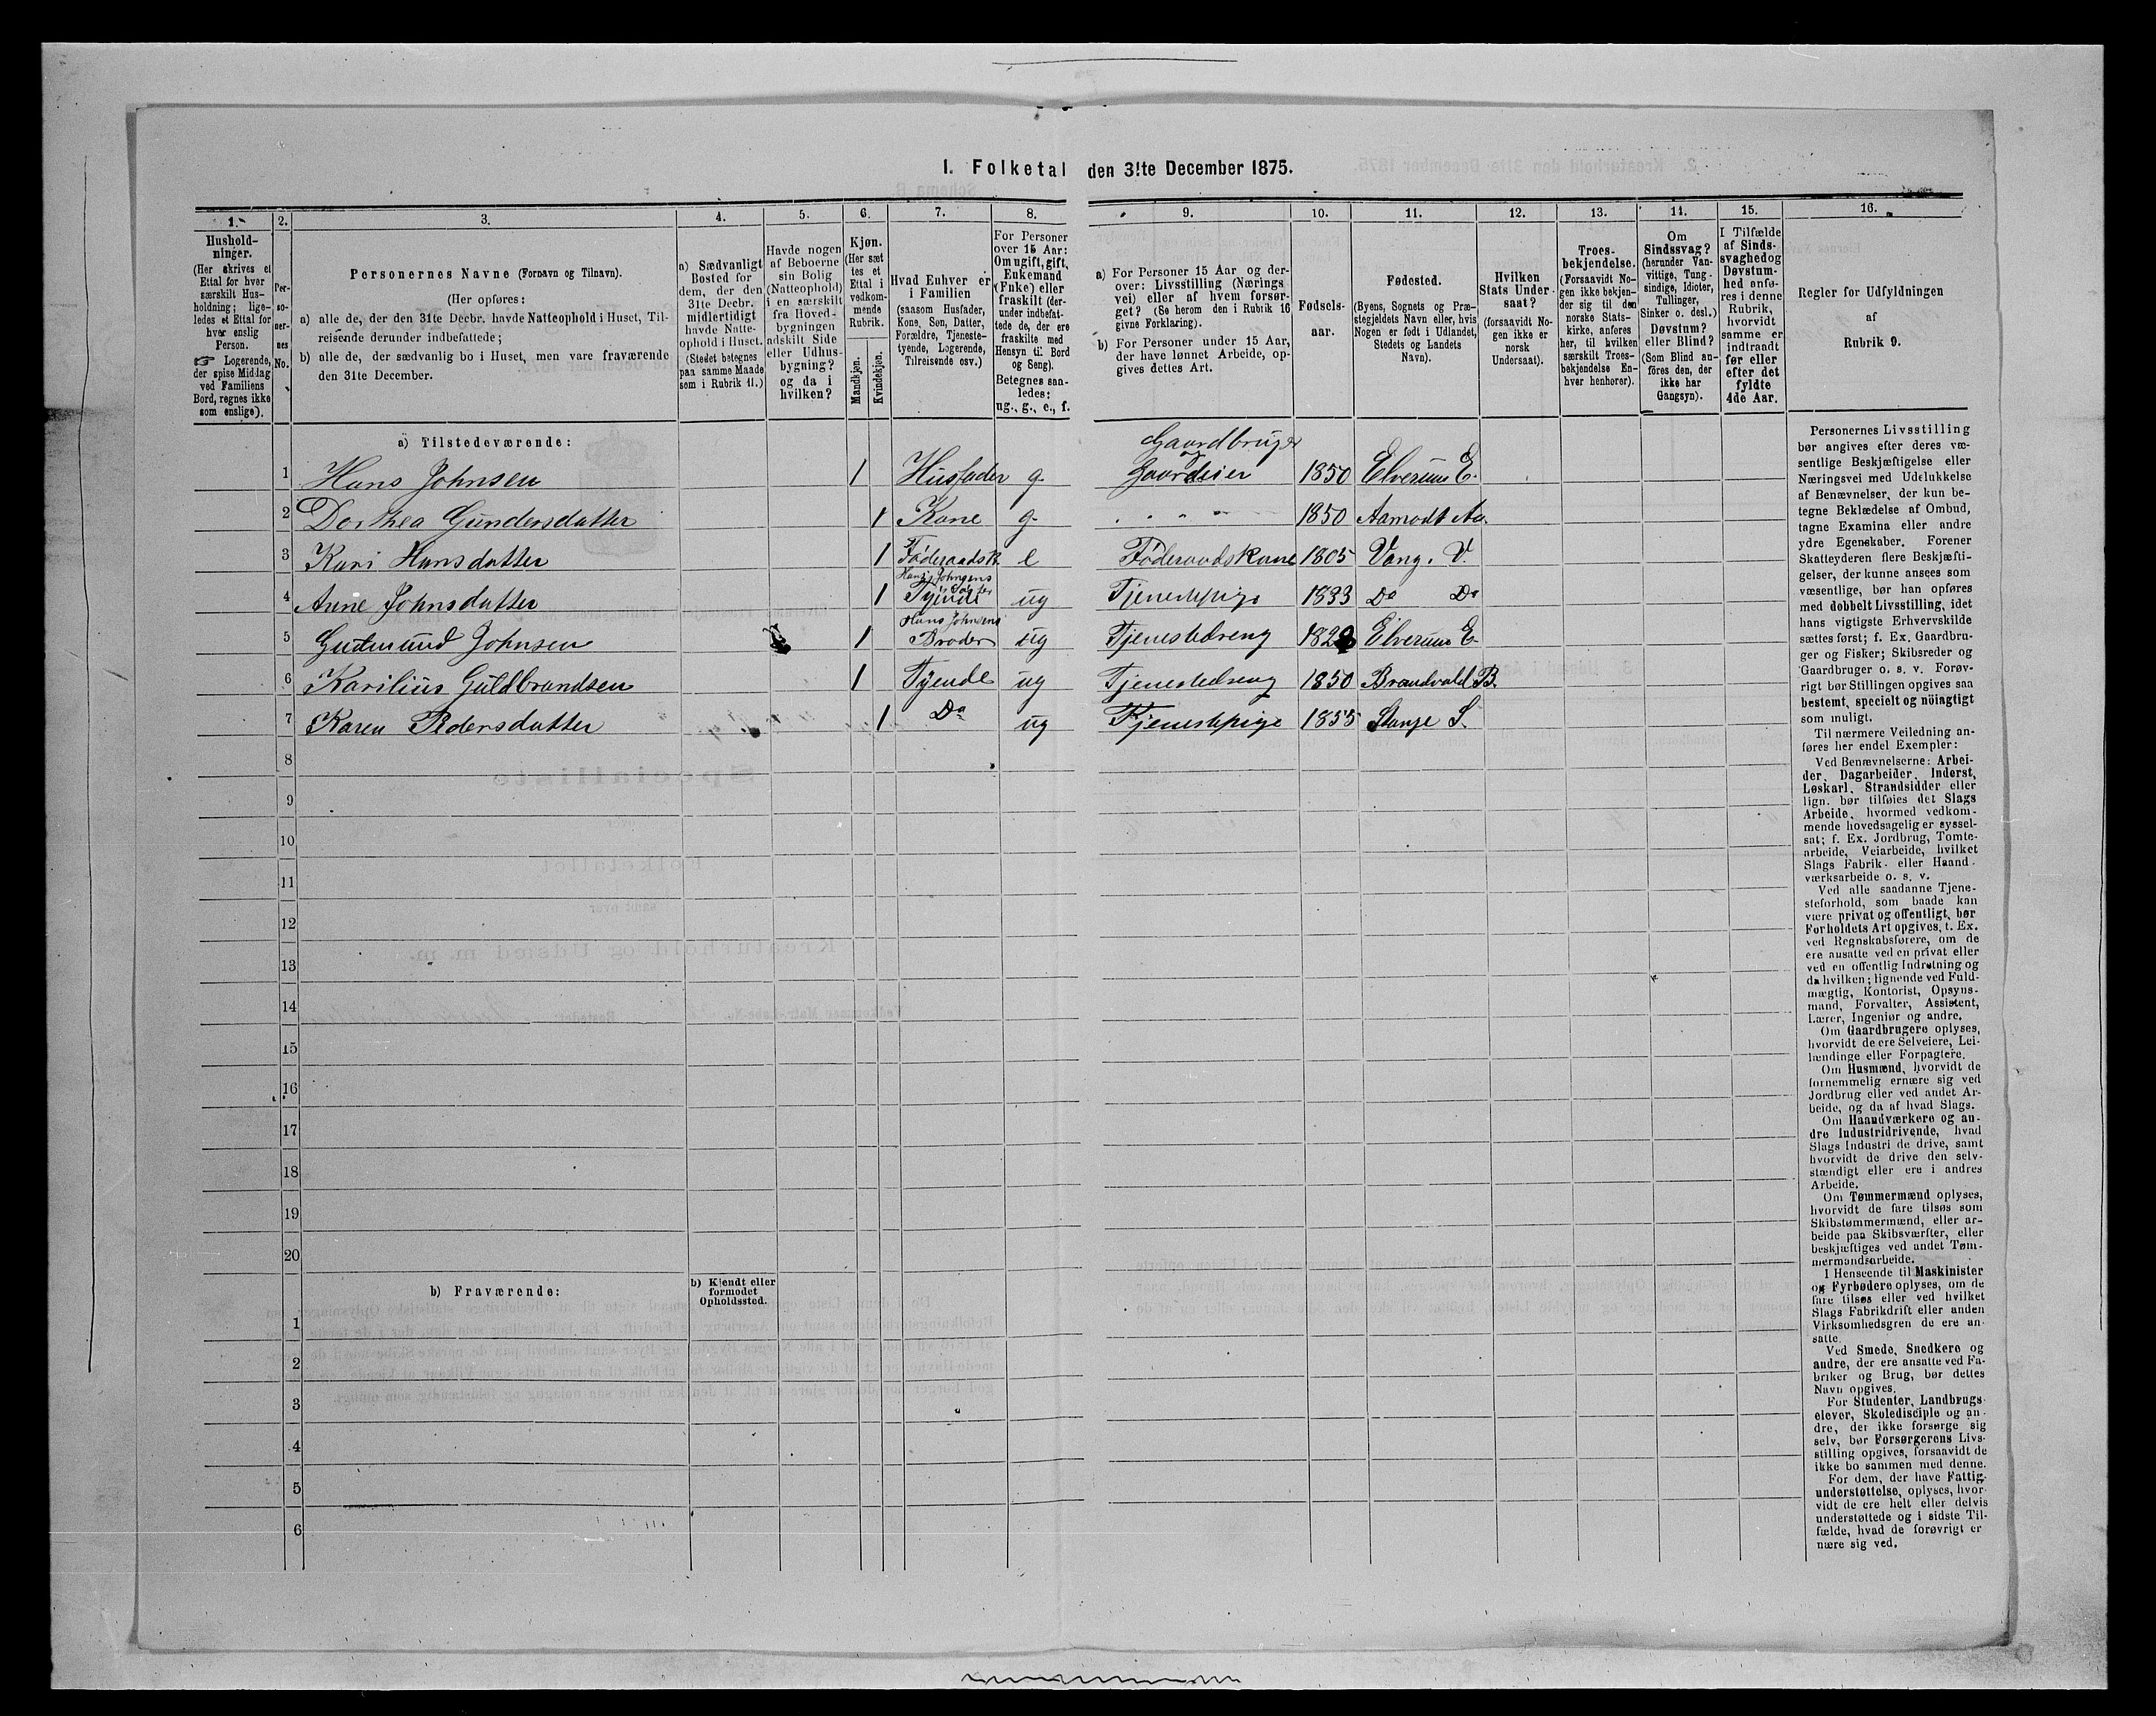 I. Folketal den 31te December 1875.
1. 2. 3. 4. 5. 6. 7. 8. 9. 10. 11. 12. 13. 14. 15. 16.
Hushold-
ninger.
(Her skrives et
Ettal for hver
særskilt Hus-
holdning; lige-
ledes et Ettal for
hver enslig
Person.
☞ Logerende,
der spise Middag
ved Familiens
Bord, regnes ikke
som enslige).
Per-
so-
ner-
nes
No.
Personernes Navne (Fornavn og Tilnavn).
(Her opføres:
a) alle de, der den 31te Decbr. havde Natteophold i Huset, Til-
reisende derunder indbefattede;
b) alle de, der sædvanlig bo i Huset, men vare fraværende
den 31te December.
a) Sædvanligt
Bosted for
dem, der den
31te Decbr.
midlertidigt
havde Natte-
ophold i Huset.
(Stedet betegnes
paa samme Maade
som i Rubrik 11.)
Havde nogen
af Beboerne
sin Bolig
(Natteophold)
i en særskilt
fra Hoved-
bygningen
adskilt Side
eller Udhus-
bygning?
og da i
hvilken?
Kjøn.
(Her sæt
tes et
Ettal i
vedkom-
mende
Rubrik.
Mandkjøn.
Kvindekjøn.
Hvad Enhver er
i Familien
(saasom Husfader,
Kone, Søn, Datter,
Forældre, Tjeneste-
tyende, Logerende,
Tilreisende osv.)
For Personer
over 15 Aar:
Om ugift, gift,
Enkemand
(Enke) eller
fraskilt (der-
under indbefat-
tede de, der ere
fraskilte med
Hensyn til Bord
og Seng).
Betegnes saa-
ledes:
ug., g., e., f.
a) For Personer 15 Aar og der-
over: Livsstilling (Nærings
vei) eller af hvem forsør-
get? (Se herom den i Rubrik 16
givne Forklaring).
b) For Personer under 15 Aar,
der have lønnet Arbeide, op-
gives dettes Art.
Fødsels-
aar.
Fødested.
(Byens, Sognets og Præ-
stegjeldets Navn eller, hvis
Nogen er født i Udlandet,
Stedets og Landets
Navn).
Hvilken
Stats Under-
saat?
(forsaavidt No-
gen ikke er
norsk
Undersaat).
Troes-
bekjendelse.
(Forsaavidt No-
gen ikke bekjen-
der sig til den
norske Stats-
kirke, anføres
her, til hvilken
særskilt Troes-
bekjendelse En-
hver henhører).
Om
Sindssvag?
(herunder Van-
vittige, Tung-
sindige, Idioter,
Tullinger,
Sinker o. desl.)
Døvstum?
eller Blind?
(Som Blind an-
føres den, der
ikke har
Gangsyn).
I Tilfælde
af Sinds-
svaghed og
Døvstum-
hed anfø-
res i denne
Rubrik,
hvorvidt
samme er
indtraadt
før eller
efter det
fyldte
4de Aar.
Regler for Udfyldningen
af
Rubrik 9.
a) Tilstedeværende:
1 Hans Johnsen 1 Husfader g. Gaardbruger og Gaardeier 1850 Elverum E.
2 Dorthea Gundersdatter 1 Kone g. 1850 Aamodt Aa.
3 Kari Hansdatter 1 Føderaadsk. e Føderaadskone 1805 Vang. V.
4 Anne Johnsdatter 1 Hans Johnsens Tyende ug Tjenestepige 1833 Do Do
5 Gudmund Johnsen 1 Hans Johnsens Broder ug Tjenestedreng Elverum E.
6 Karilius Guldbrandsen 1 Tyende ug Tjenestedreng 1850 Brandvald B.
7 Karen Pedersdatter 1 Do ug Tjenestepige 1855 Stange S.
8
9
10
11
12
13
14
15
16
17
18
19
20
b) Fraværende:
b) Kjendt eller
formodet
Opholdssted.
1
2
3
4
5
6
Personernes Livsstilling
bør angives efter deres væ-
sentlige Beskjæftigelse eller
Næringsvei med Udelukkelse
af Benævnelser, der kun be-
tegne Beklædelse af Ombud,
tagne Examina eller andre
ydre Egenskaber. Forener
Skatteyderen flere Beskjæfti-
gelser, der kunne ansees som
væsentlige, bør han opføres
med dobbelt Livsstilling, idet
hans vigtigste Erhvervskilde
sættes først; f. Ex. Gaardbru-
ger og Fisker; Skibsreder og
Gaardbruger o. s. v. Forøv-
rigt bør Stillingen opgives saa
bestemt, specielt og nöiagtigt
som muligt.
Til nærmere Veiledning an-
føres her endel Exempler:
Ved Benævnelserne: Arbei-
der, Dagarbeider, Inderst,
Løskarl, Strandsidder eller
lign. bør tilføies det Slags
Arbeide, hvormed vedkom-
mende hovedsagelig er syssel-
sat; f. Ex. Jordbrug, Tomte-
arbeide, Veiarbeide, hvilket
Slags Fabrik- eller Haand-
værksarbeide o. s. v.
Ved alle saadanne Tjene-
steforhold, som baade kan
være privat og offentligt, bør
Forholdets Art opgives, f. Ex.
ved Regnskabsførere, om de
ere ansatte ved en privat eller
ved en offentlig Indretning og
da hvilken; lignende ved Fuld-
mægtig, Kontorist, Opsyns-
mand, Forvalter, Assistent,
Lærer, Ingeniør og andre.
Om Gaardbrugere oplyses,
hvorvidt de ere Selveiere, Lei-
lændinge eller Forpagtere.
Om Husmænd, hvorvidt de
fornemmelig ernære sig ved
Jordbrug eller ved andet Ar-
beide, og da af hvad Slags.
Om Haandværkere og an-
dre Industridrivende, hvad
Slags Industri de drive, samt
hvorvidt de drive den selv-
stændigt eller ere i andres
Arbeide.
Om Tømmermænd oplyses,
hvorvidt de fare tilsøs som
Skibstømmermænd, eller ar-
beide paa Skibsværfter, eller
beskjæftiges ved andet Tøm-
mermandsarbeide.
I Henseende til Maskinister
og Fyrbødere oplyses, om de
fare tilsøs eller ved hvilket
Slags Fabrikdrift eller anden
Virksomhedsgren de ere an-
satte.
Ved Smede, Snedkere og
andre, der ere ansatte ved Fa-
briker og Brug, bør dettes
Navn opgives.
For Studenter, Landbrugs-
elever, Skoledisciple og an-
dre, der ikke forsørge sig
selv, bør Forsørgerens Livs-
stilling opgives, forsaavidt de
ikke bo sammen med denne.
For dem, der have Fattig-
understøttelse, oplyses, hvor-
vidt de ere helt eller delvis
understøttede og i sidste Til-
fælde, hvad de forøvrigt er
nære sig ved.